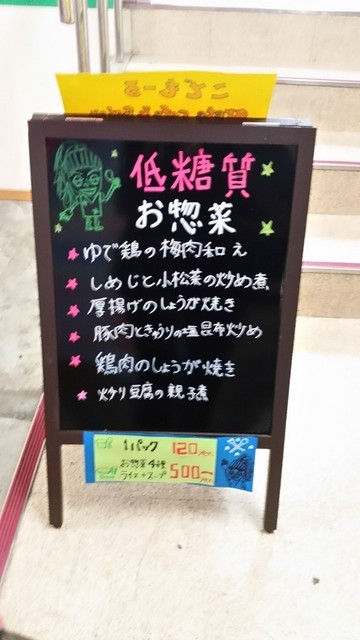 低糖質
お惣菜
ゆで鶏の梅肉和え
しめじと小松菜の炒め煮
厚揚げのしょうが焼き
豚肉ときゅうりの塩昆布炒め
鶏肉のしょうが焼き
炒り豆腐の親子煮
1パック 120
お惣菜4種
ライス・スープ 500